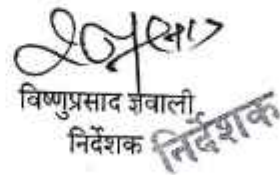 विष्णुप्रसाद ज्ञवाली
निर्देशक
निर्देशक